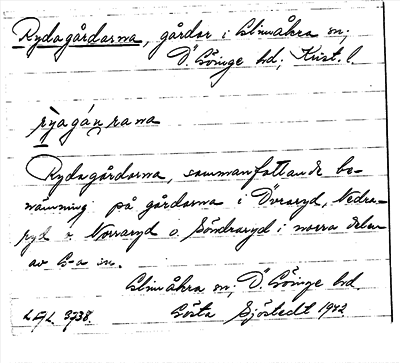 Rydagårdarna, gårdar i Glimåkra sn;
Ö. Göinge hd; Krist. l.
ryagáṇrana
Rydagårdarna, sammanfattande be-
nämning på gårdarna i Övraryd, Nedra-
ryd, Norraryd o. Söndraryd i norra delen
av G-a sn.
Glimåkra sn; Ö. Göinge hd
L.A.L. 3738. Gösta Sjöstedt 1942